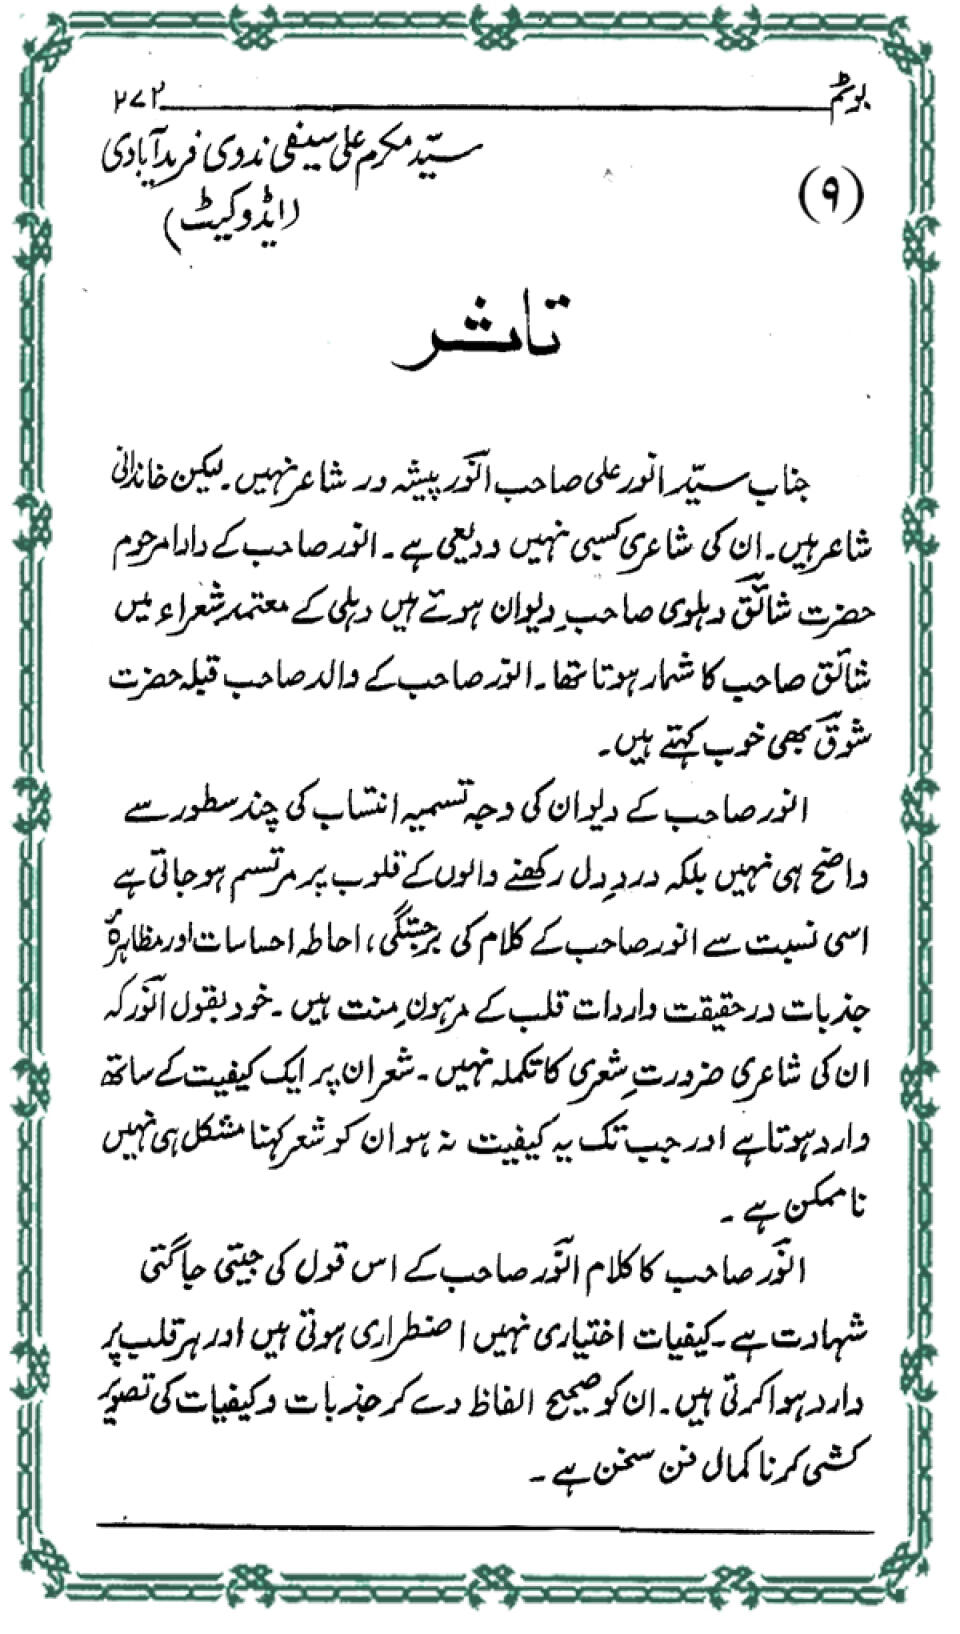 بوئے غم ۲۷۲
(۹)
سیّد مکرم علی سیفی ندوی فریدآبادی
(ایڈوکیٹ)
تاثر
جناب سیّد انور علی صاحب انوؔر پیشہ ور شاعر نہیں۔ لیکن خاندانی
شاعر ہیں۔ ان کی شاعری کسبی نہیں ودیعی ہے۔ انور صاحب کے دادا مرحوم
حضرت شائقؔ دہلوی صاحبِ دیوان ہوئے ہیں دہلی کے معتمد شعراء میں
شائقؔ صاحب کا شمار ہوتا تھا۔ انور صاحب کے والد صاحب قبلہ حضرت
شوقؔ بھی خوب کہتے ہیں۔
انور صاحب کے دیوان کی وجہ تسمیہ انتساب کی چند سطور سے
واضح ہی نہیں بلکہ دردِ دل رکھنے والوں کے قلوب پر مرتسم ہو جاتی ہے
اسی نسبت سے انور صاحب کے کلام کی برجستگی، احاطہ احساسات اور مظاہرۂ
جذبات در حقیقت واردات قلب کے مرہونِ منت ہیں۔ خود بقول انوؔر کہ
ان کی شاعری ضرورتِ شعری کا تکملہ نہیں۔ شعر ان پر ایک کیفیت کے ساتھ
وارد ہوتا ہے اور جب تک یہ کیفیت نہ ہو ان کو شعر کہنا مشکل ہی نہیں
ناممکن ہے۔
انوؔر صاحب کا کلام انوؔر صاحب کے اس قول کی جیتی جاگتی
شہادت ہے۔ کیفیات اختیاری نہیں اضطراری ہوتی ہیں اور ہر قلب پر
وارد ہوا کرتی ہیں۔ ان کو صحیح الفاظ دے کر جذبات و کیفیات کی تصویر
کشی کرنا کمال فن سخن ہے۔